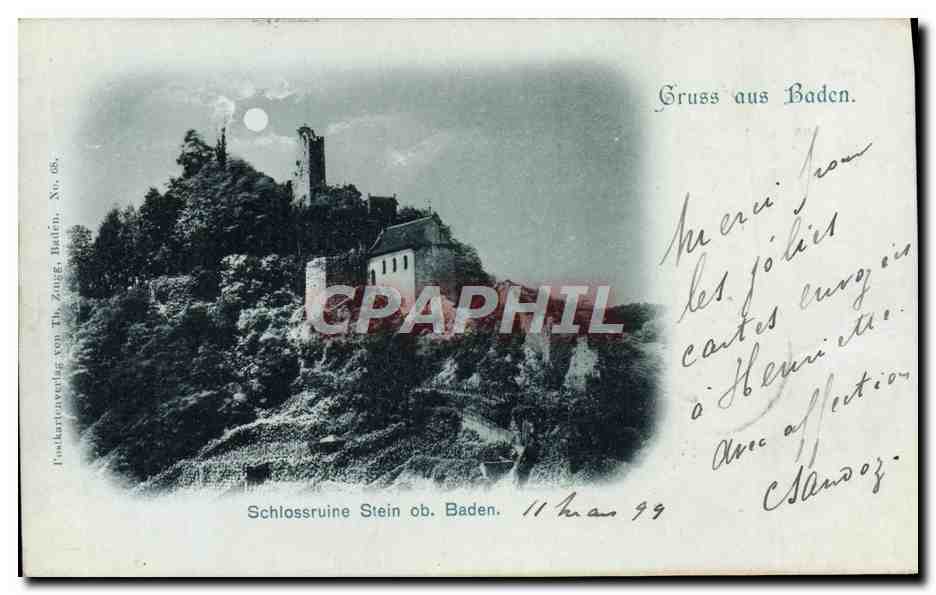 Gruss aus Baden.
Merci pour
les jolies
cartes envoyées
à Henriette.
avec affection
CSandoz.
Postkartenverlag von Th. Zingg, Baden. No. 68.
CPAPHIL
Schlossruine Stein ob. Baden. 11 mars 99